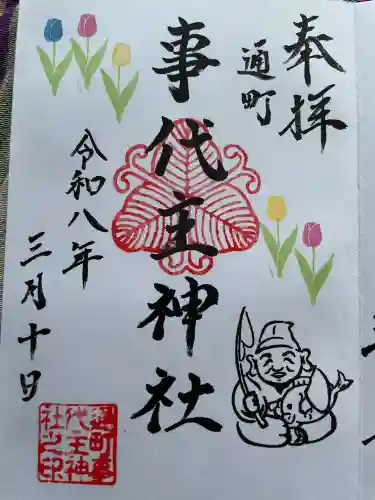 奉拝
通町
事代主神社
令和八年
三月十日
通町事
代主神
社之印